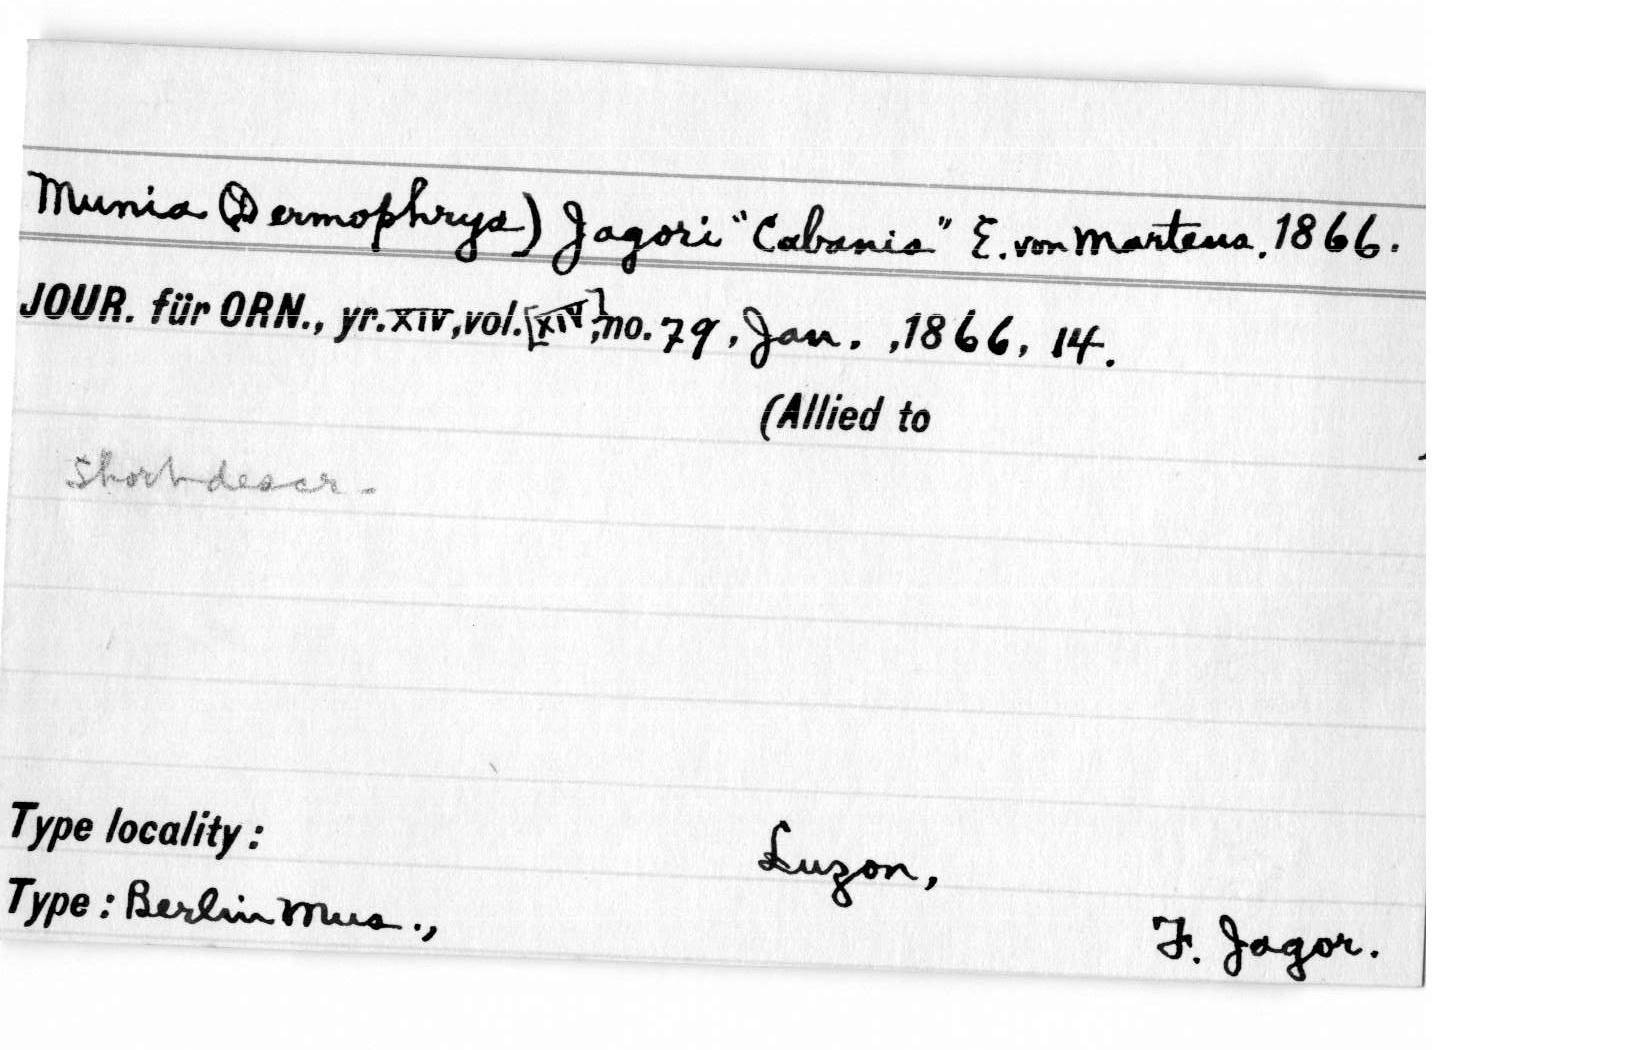 Munia (Dermophrys) Jagori "Cabanis" E. von Martens. 1866.
JOUR. für ORN., yr. XIV, vol. [XIV], no. 79, Jan. , 1866, 14.
(Allied to )
Short descr-
Type locality: Luzon,
Type: Berlin Mus., F. Jagor.